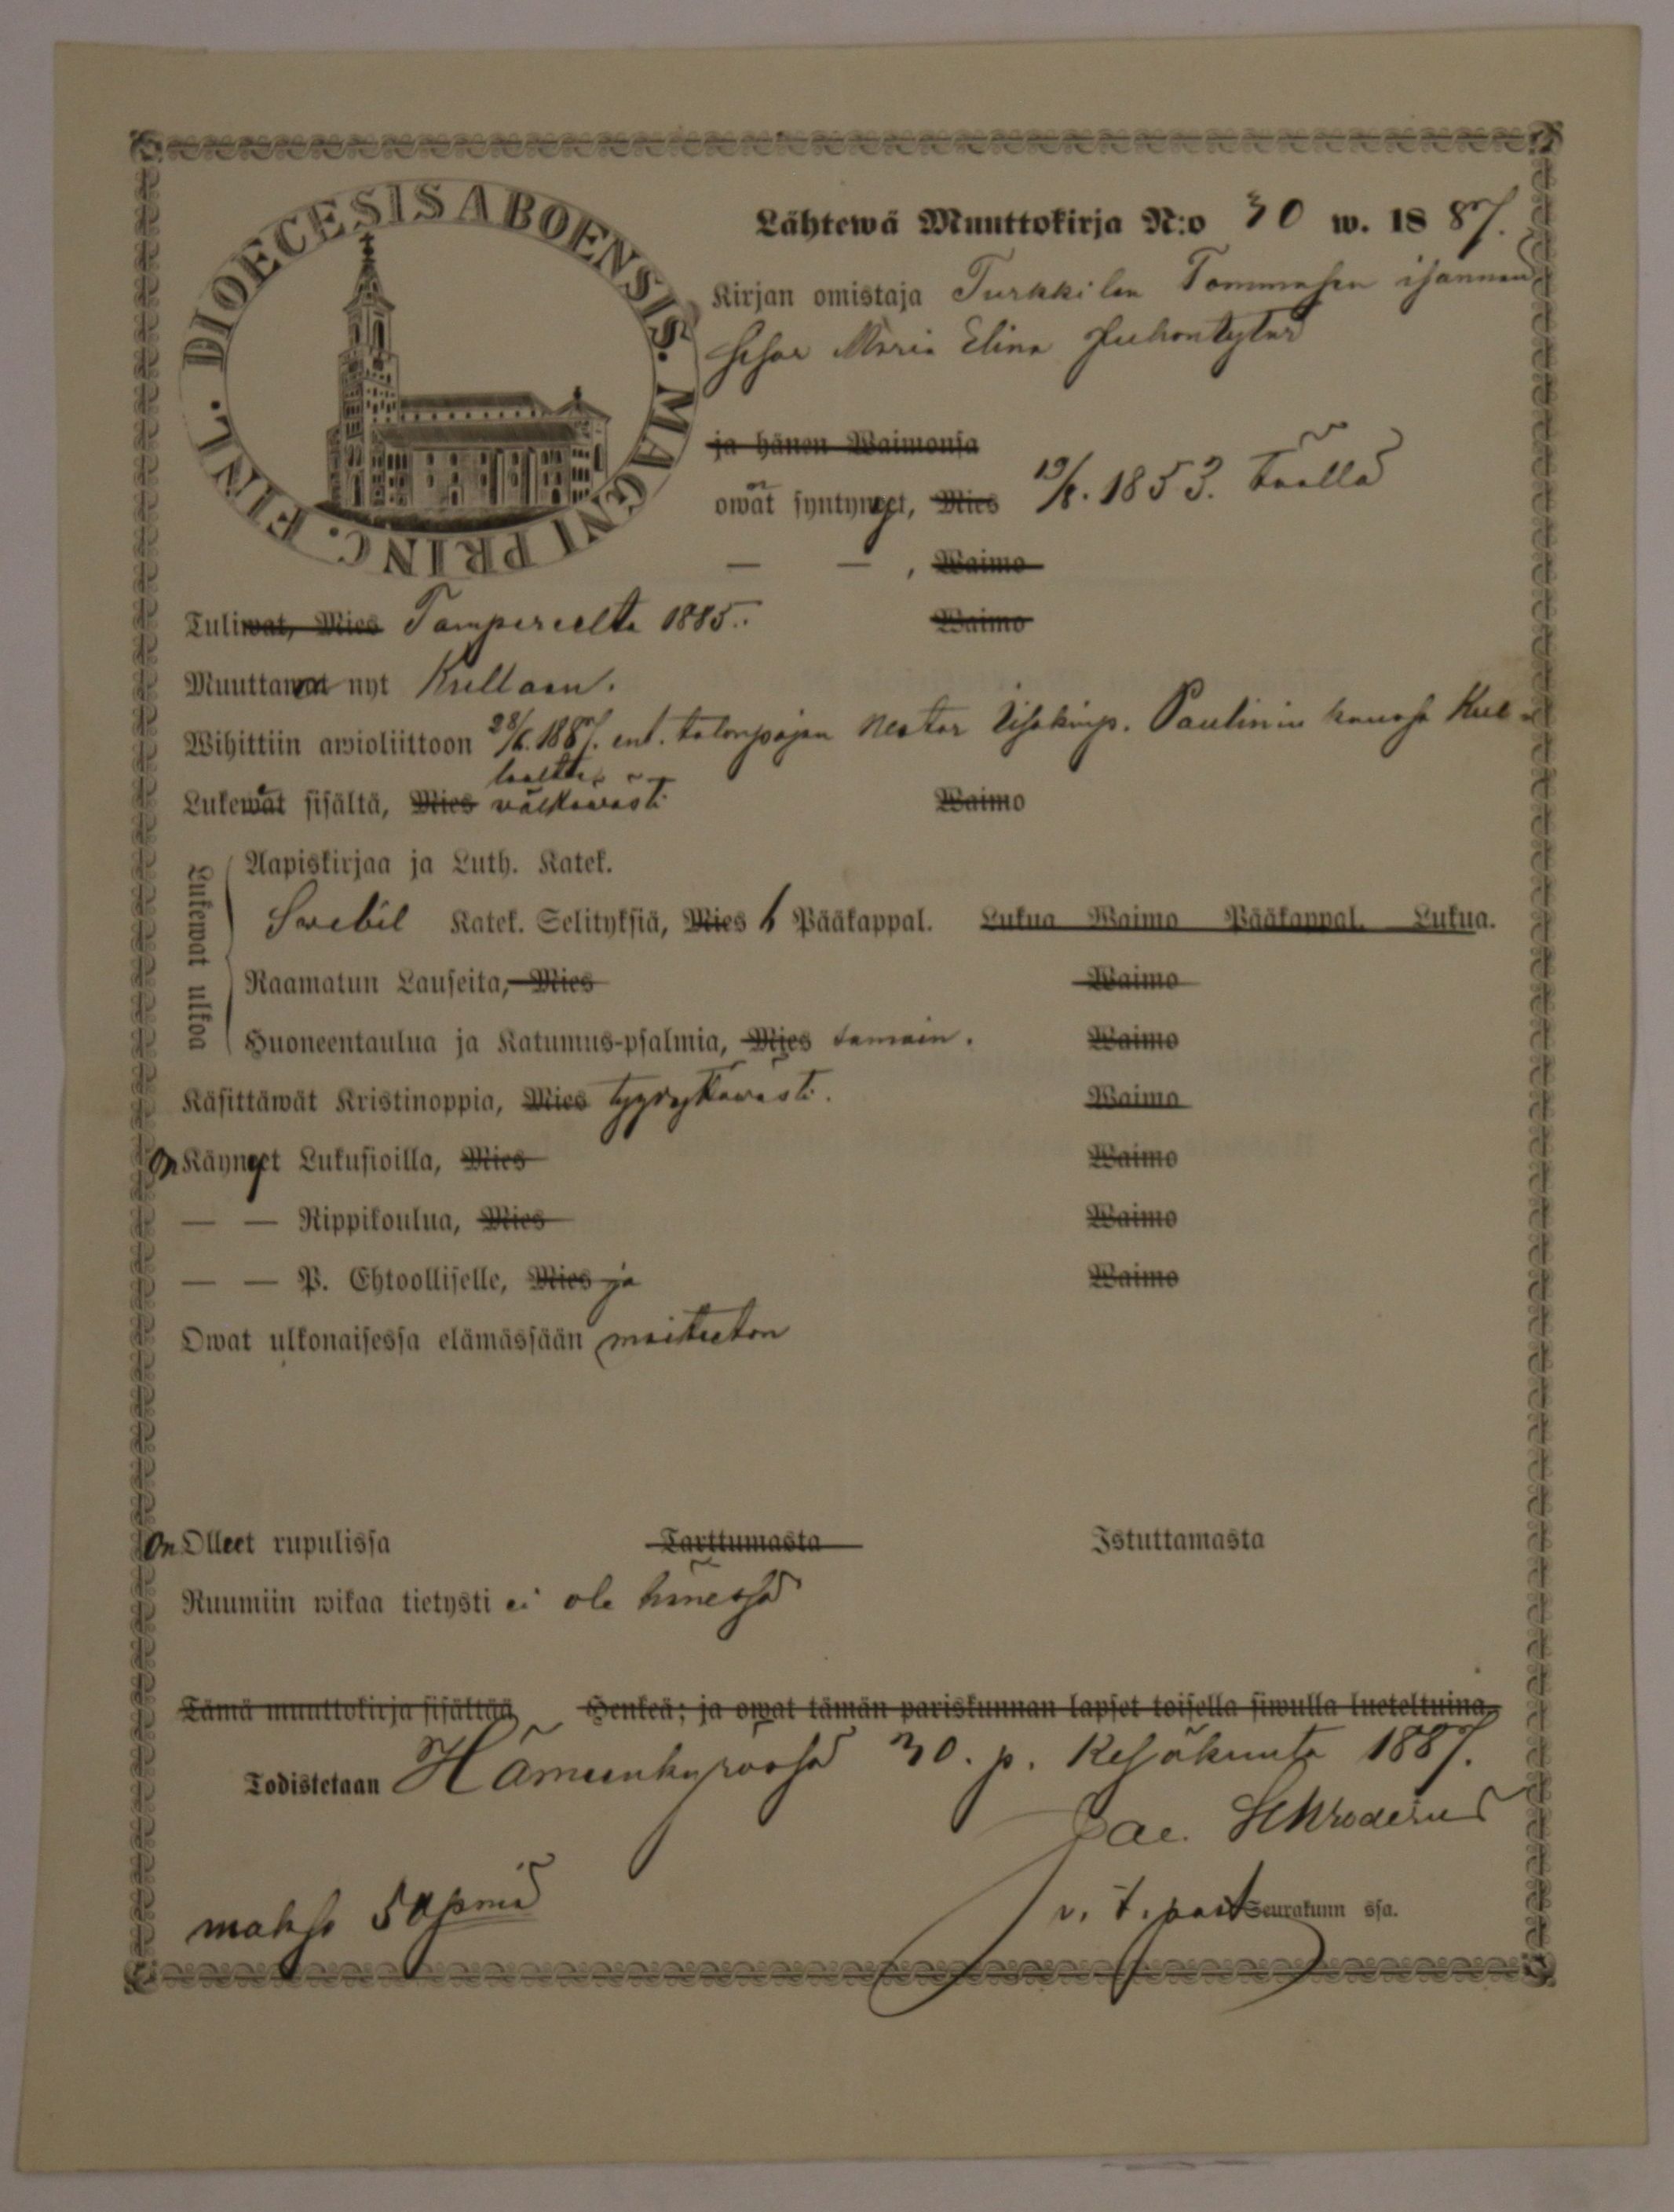 DIOECESIS ABOENSIS. MAGNI PRINC. FINL.
Lähtewä Muuttokirja N:o 30 w. 1887.
Kirjan omistaja Turkkilan Tommosen isännän
sisar Maria Elina Juhontytär
ja hänen Waimonsa
owat syntyneet, Mies 19/8. 1853. täällä
— — , Waimo
Tuliwat, Mies Tampereelta 1885. Waimo
Muuttawat nyt Kullaan.
Wihittiin awioliittoon 28/6. 1887. ent. talonpojan Nestor Paulinin kanssa Kul-
laalta
Lukewat sisältä, Mies välttävästi Waimo
Lukewat ulkoa
Aapiskirjaa ja Luth. Katek.
Svebil Katek. Selityksiä, Mies 6 Pääkappal. Lukua Waimo Pääkappal. Lukua.
Raamatun Lauseita, Mies Waimo
Huoneentaulua ja Katumus-psalmia, Mies samoin. Waimo
Käsittäwät Kristinoppia, Mies tyydyttävästi. Waimo
On Käyneet Lukusioilla, Mies Waimo
— — Rippikoulua, Mies Waimo
— — P. Ehtoolliselle, Mies ja Waimo
Owat ulkonaisessa elämässään moitteeton
On Olleet rupulissa Tarttumasta Istuttamasta
Ruumiin wikaa tietysti ei ole hänessä
Tämä muuttokirja sisältää Henkeä; ja owat tämän pariskunnan lapset toisella siwulla lueteltuina.
Todistetaan Hämeenkyrössä 30. p. Kesäkuuta 1887.
Jac. Schroderus
v. t. past Seurakunn ssa.
maksa 50 pniä